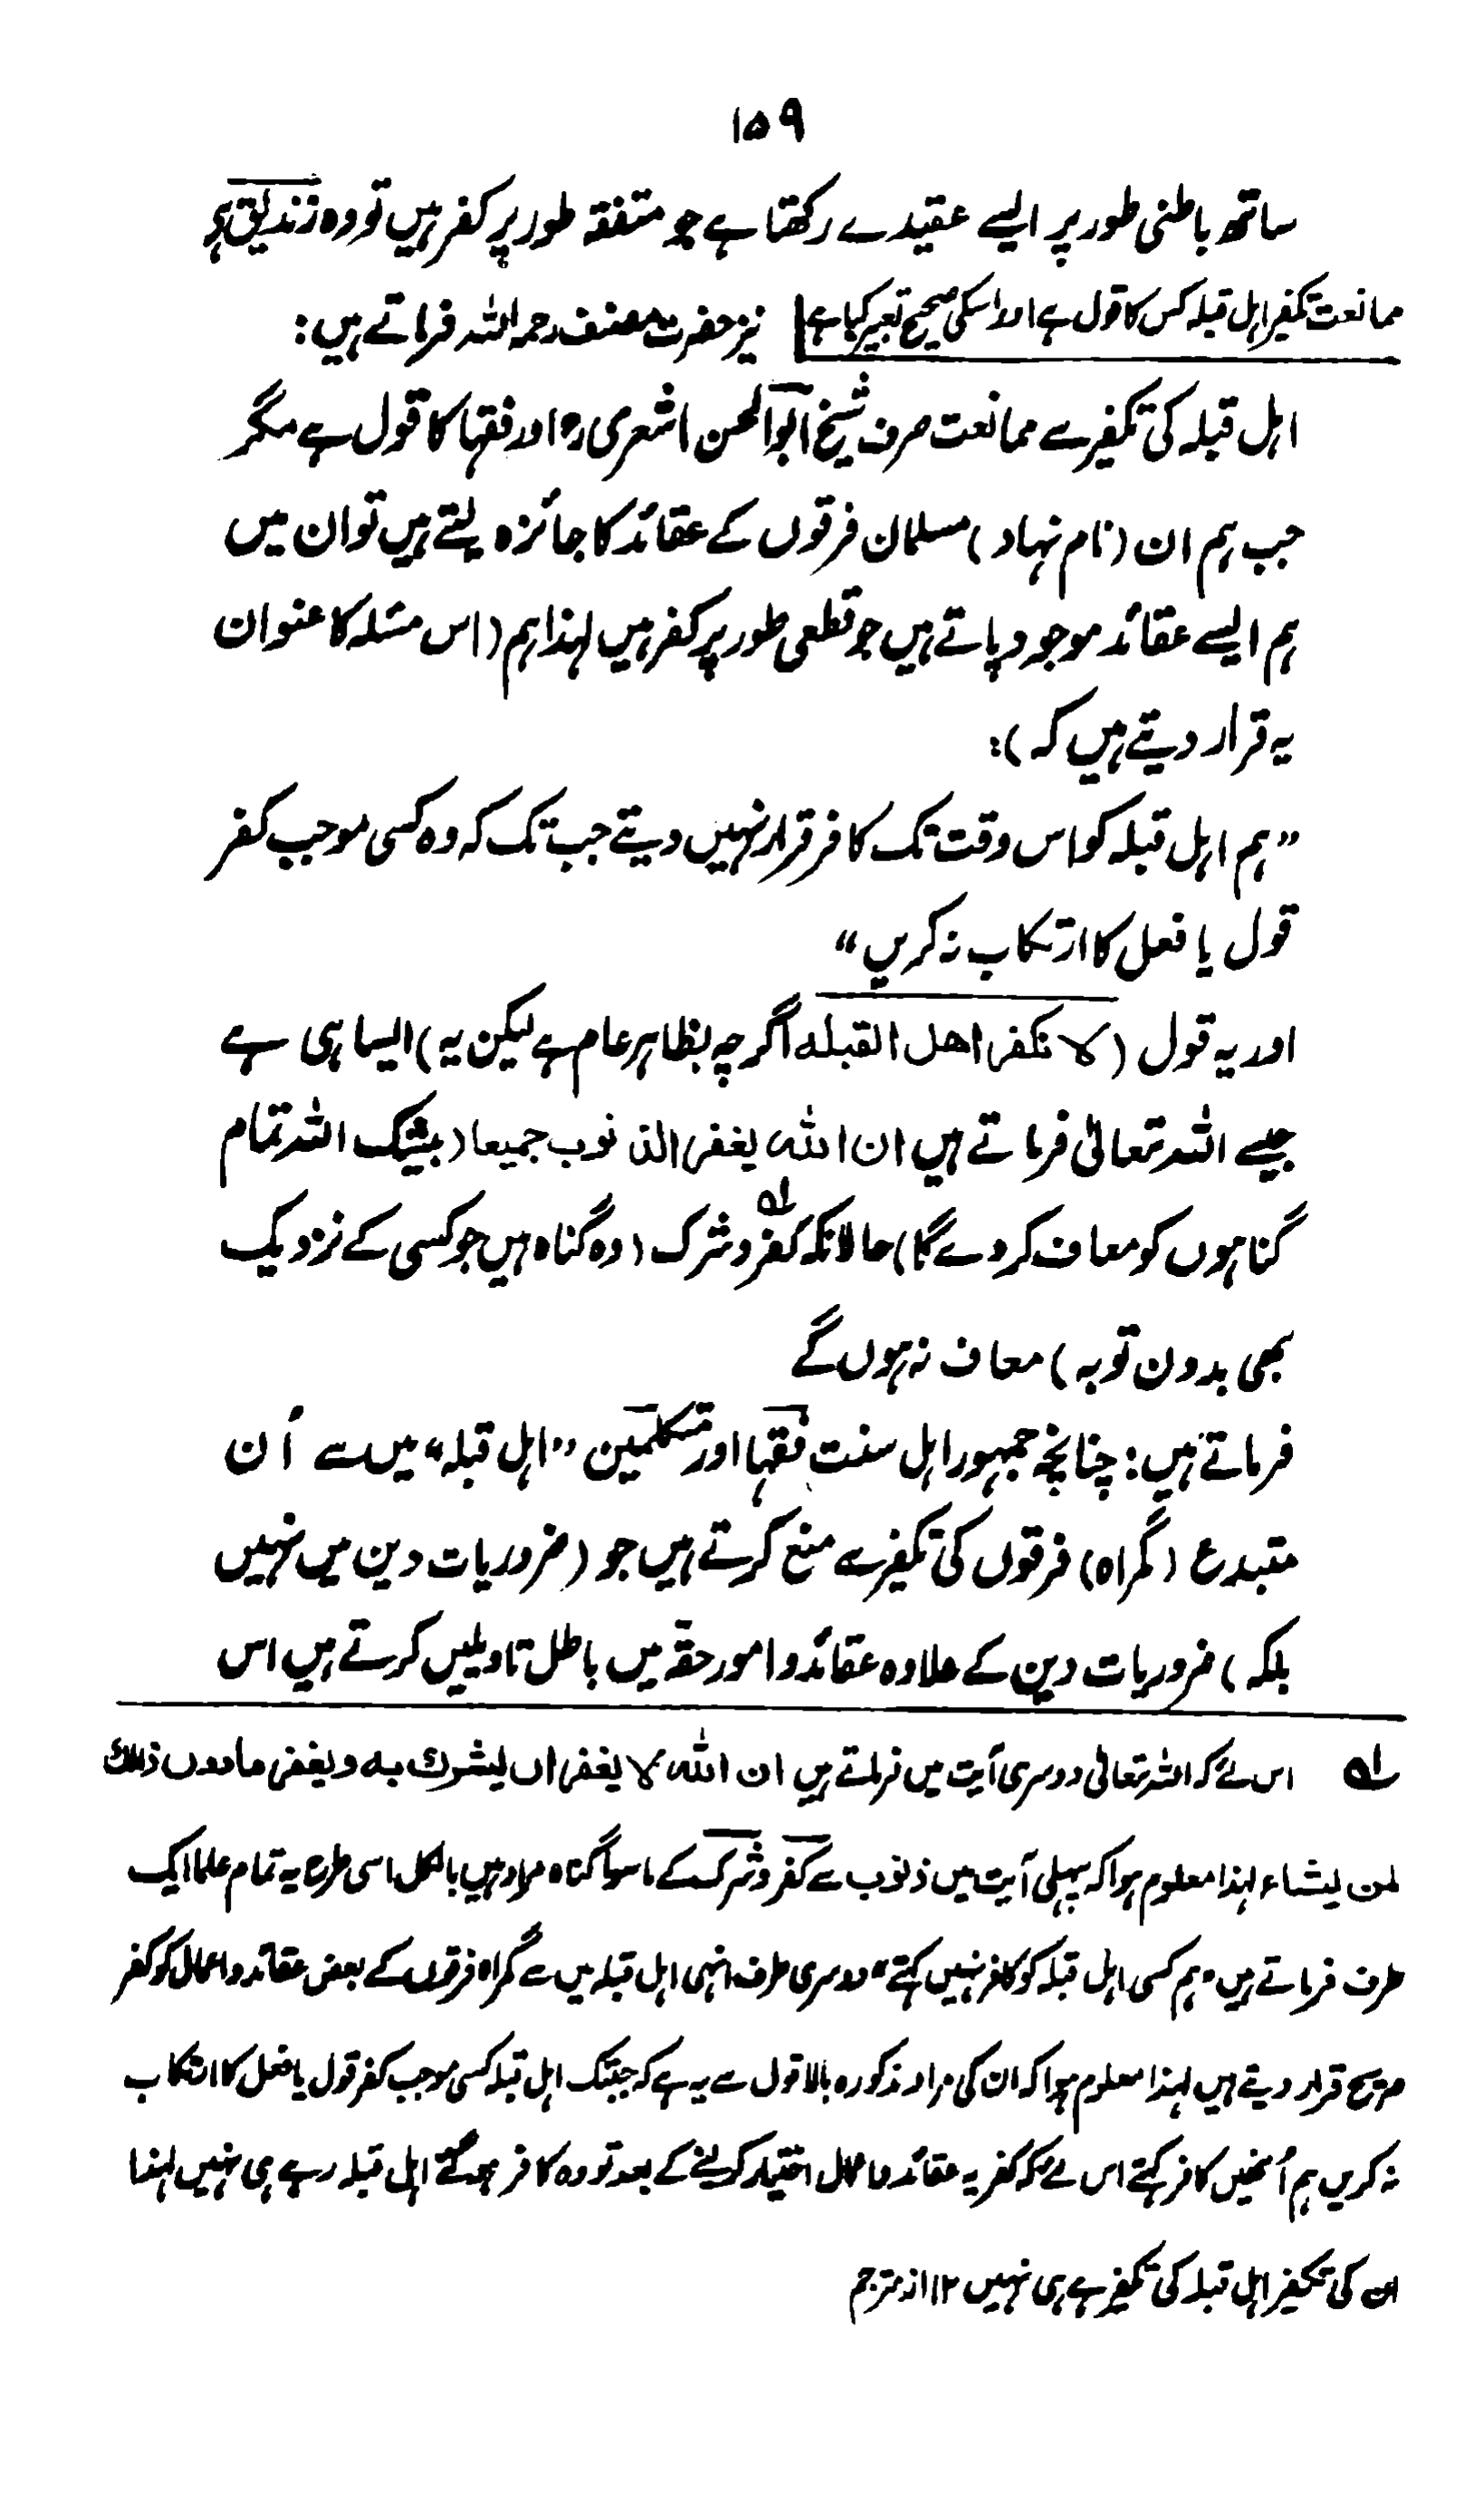 ۱۵۹
ساتھ باطنی طور پر ایسے عقیدے رکھتا ہے جو متفقہ طور پر کفر ہیں تو وہ زندیق ہے
ممانعت تکفیر اہل قبلہ کس کا قول ہے اور اسکی صحیح تعبیر کیا ہے نیز حضرت مصنف رحمہ اللہ فرماتے ہیں:
اہل قبلہ کی تکفیر سے ممانعت صرف شیخ ابوالحسن اشعری رح اور فقہا کا قول ہے مگر
جب ہم ان (نام نہاد) مسلمان فرقوں کے عقائد کا جائزہ لیتے ہیں تو ان میں
ہم ایسے عقائد موجود پاتے ہیں جو قطعی طور پر کفر ہیں لہذا ہم (اس مسئلہ کا عنوان
یہ قرار دیتے ہیں کہ):
”ہم اہل قبلہ کو اس وقت تک کافر قرار نہیں دیتے جب تک کہ وہ کسی موجب کفر
قول یا فعل کا ارتکاب نہ کریں“
اور یہ قول (لا نکفر اھل القبلہ اگرچہ بظاہر عام ہے لیکن یہ) ایسا ہی ہے
جیسے اللہ تعالیٰ فرماتے ہیں ان اللہ یغفر الذنوب جمیعا (بیشک اللہ تمام
گناہوں کو معاف کر دے گا) حالانکہ کفر و شرک ؎۱ (وہ گناہ ہیں جو کسی کے نزدیک
بھی بدون توبہ) معاف نہ ہوں گے
فرماتے ہیں: چنانچہ جمہور اہل سنت فقہا اور متکلمین ”اہل قبلہ“ میں سے اُن
مبتدع (گمراہ) فرقوں کی تکفیر سے منع کرتے ہیں جو (ضروریات دین میں نہیں
بلکہ) ضروریات دین کے علاوہ عقائد و امور حقہ میں باطل تاویلیں کرتے ہیں اس
؎۱ اس لئے کہ اللہ تعالیٰ دوسری آیت میں فرماتے ہیں ان اللہ لا یغفر ان یشرک بہ ویغفر ما دون ذلک
لمن یشاء لہذا معلوم ہوا کہ پہلی آیت میں ذنوب سے کفر و شرک کے ماسوا گناہ مراد ہیں بالکل اسی طرح یہ تمام علما ایک
طرف فرماتے ہیں ”ہم کسی اہل قبلہ کو کافر نہیں کہتے“ دوسری طرف انہی اہل قبلہ میں سے گمراہ فرقوں کے بعض عقائد و اعمال کو کفر
صریح قرار دیتے ہیں لہذا معلوم ہوا کہ ان کی مراد مذکورہ بالا قول سے یہ ہے کہ جبتک اہل قبلہ کسی موجب کفر قول یا فعل کا ارتکاب
نہ کریں ہم اُنھیں کافر نہیں کہتے اس لئے کہ کفریہ عقائد و اعمال اختیار کرلینے کے بعد تو وہ کافر ہو گئے اہل قبلہ رہے ہی نہیں لہذا
ان کی تکفیر اہل قبلہ کی تکفیر ہے ہی نہیں ۱۲ از مترجم